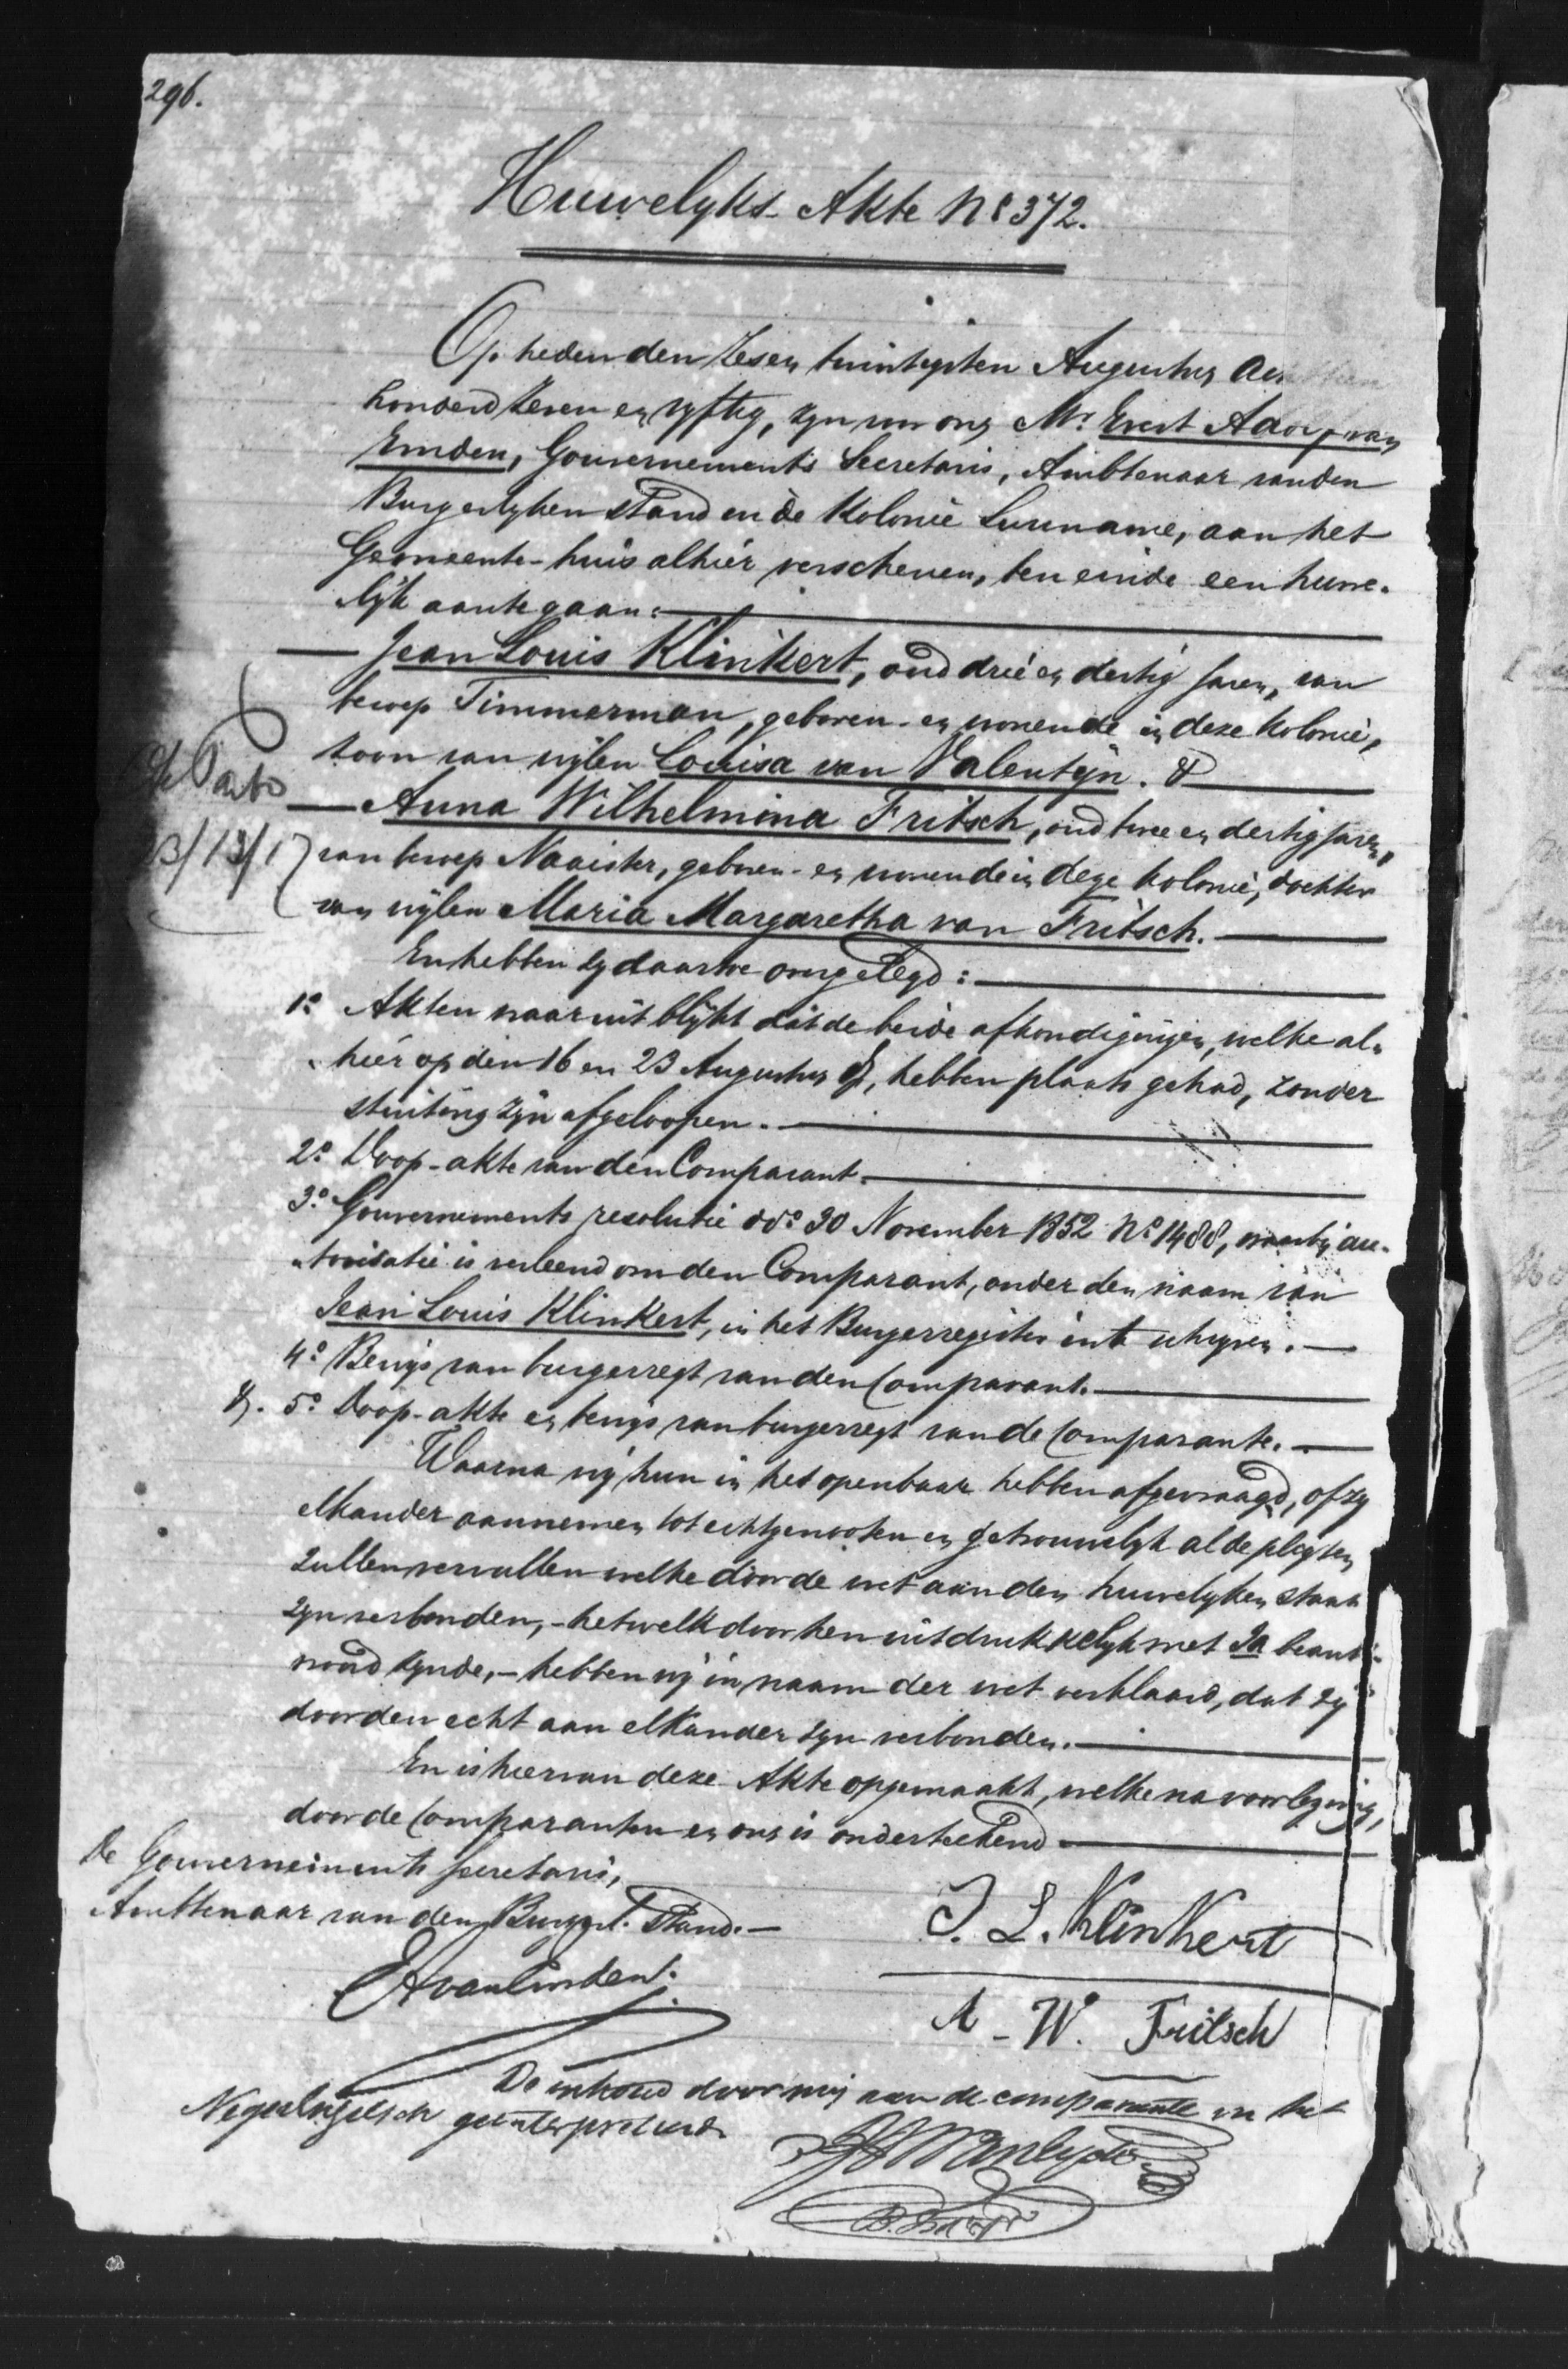 296.
Huwelyks-Akte No 372.
Op heden den Zesen twintigsten Augustus
honderd Zeven en vyftig, zyn voor ons Mr. Evert Adolf van
Emden, Gouvernements Secretaris, Ambtenaar van den
Burgerlyken Stand in de Kolonie Suriname, aan het
Gemeente-huis alhier verschenen, ten einde een huwe-
lyk aantegaan:
Jean Louis Klinkert, oud drie en dertig Jaren, van
beroep Timmerman, geboren- en wonende in deze kolonie,
zoon van wijlen Louisa van Valentijn. &
Anna Wilhelmina Fritsch, oud twee en dertig Jaren,
van beroep Naaister, geboren- en wonende in deze kolonie, dochter
van wijlen Maria Margaretha van Fritsch.
En hebben zy daartoe overgelegd:
1o Akten waaruit blijkt dat de beide afkondigingen, welke al-
hier op den 16 en 23 Augustus hebben plaats gehad, zonder
stuiting zyn afgeloopen.
2o Doop-akte van den Comparant.
3o Gouvernements resolutie ddo 30 November 1852 No 1488, waarbij au-
torisatie is verleend om den Comparant, onder den naam van
Jean Louis Klinkert, in het Burgerregister inte schryven.
4o Bewijs van burgerregt van den Comparant.
&. 5o Doop-akte en bewijs van burgerregt van de Comparante.
Waarna wij hun in het openbaar hebben afgevraagd, of zy
elkander aannemen tot echtgenooten en getrouwelyk al de plegten
zullen vervullen welke door de wet aan den huwelyken staat
zyn verbonden,- hetwelk door hen uitdrukkelyk met Ja beant-
woord zynde,- hebben wij in naam der wet verklaard, dat zy
door den echt aan elkander zyn verbonden.
En is hiervan deze Akte opgemaakt, welke na voorlezing,
door de Comparanten en ons is onderteekend
De Gouvernements Secretaris,
Ambtenaar van den Burgerl. Stand.-
EA van Emden.
J. L. Klinkert
A-W. Fritsch
De inhoud door mij aan de comparante in het
Neger Engelsch geinterpreteerd.